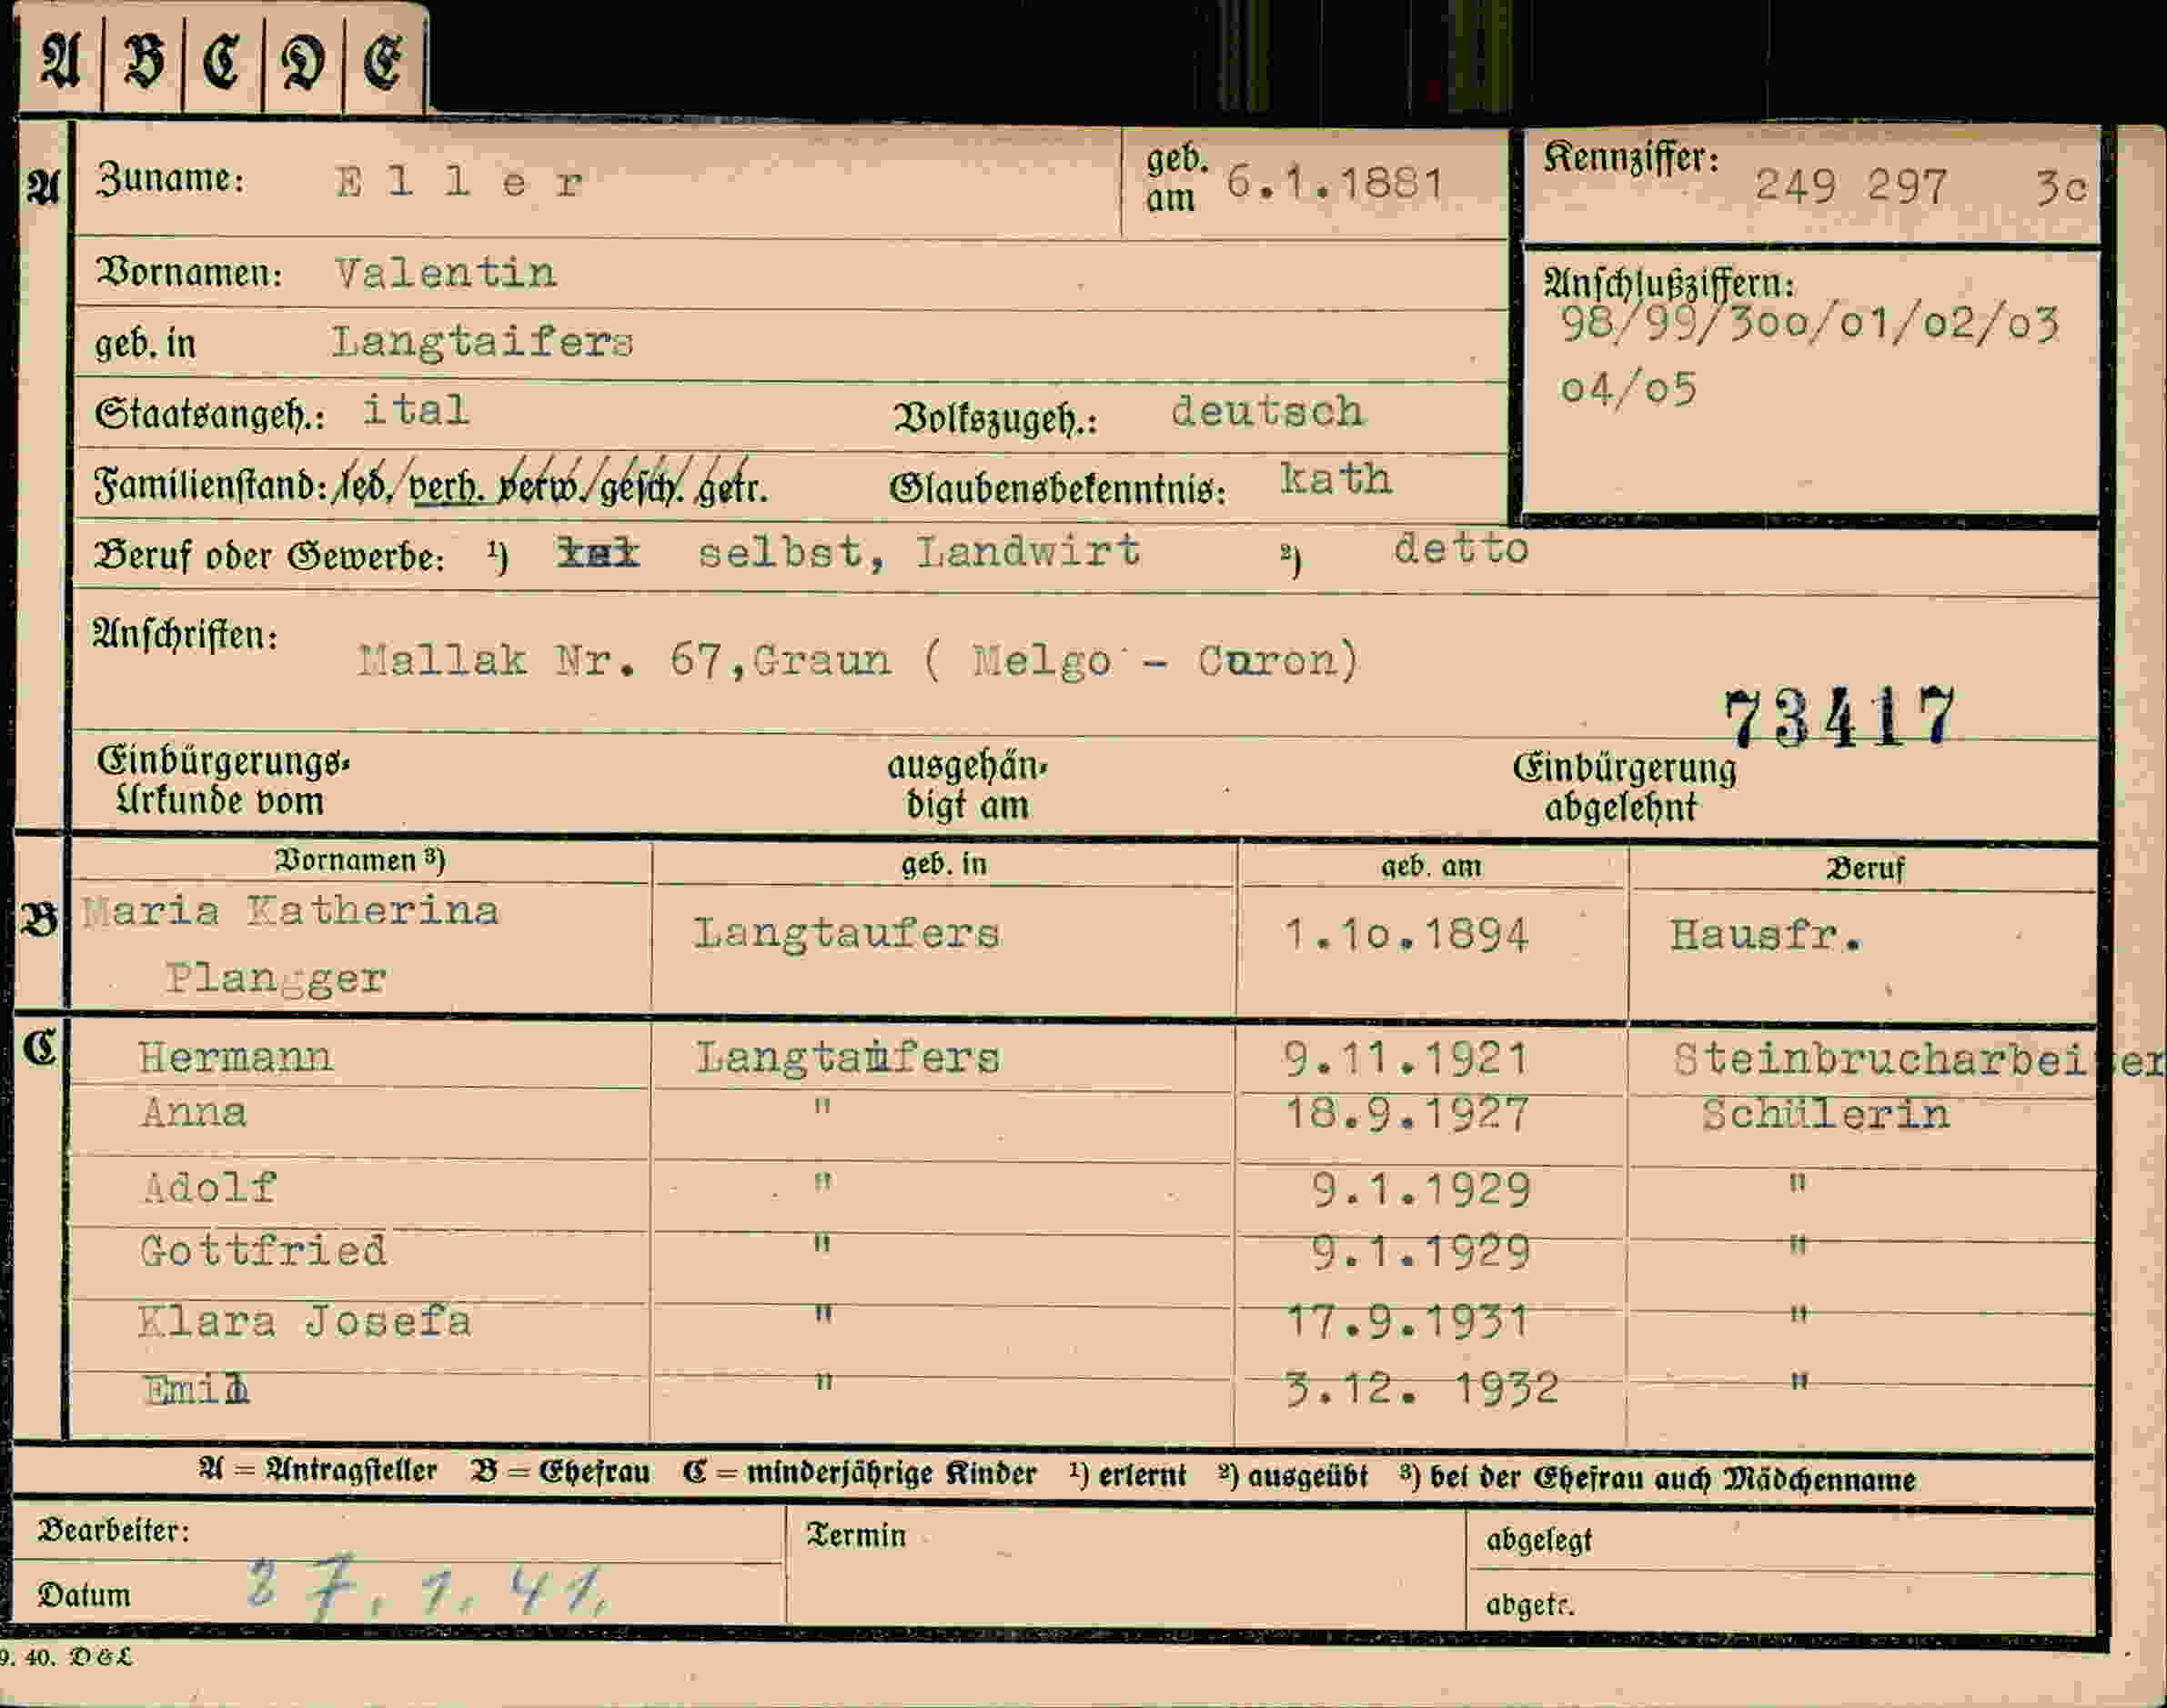 A B C D E
A Zuname: Eller geb. am 6.1.1881 Kennziffer: 249 297 3c
Vornamen: Valentin
geb. in Langtaifers
Anschlußziffern:
98/99/3oo/o1/o2/o3
o4/o5
Staatsangeh.: ital Volkszugeh.: deutsch
Familienstand: led. verh. verw. gesch. getr. Glaubensbekenntnis: kath
Beruf oder Gewerbe: ¹) selbst, Landwirt ²) detto
Anschriften: Mallak Nr. 67,Graun ( Melgo - Curon)
73417
Einbürgerungs-Urkunde vom ausgehän-digt am Einbürgerung abgelehnt
Vornamen ³) geb. in geb. am Beruf
B Maria Katherina Plangger Langtaufers 1.1o.1894 Hausfr.
C Hermann Langtaufers 9.11.1921 Steinbrucharbeiter
Anna " 18.9.1927 Schülerin
Adolf " 9.1.1929 "
Gottfried " 9.1.1929 "
Klara Josefa " 17.9.1931 "
Emil " 3.12. 1932 "
A = Antragsteller B = Ehefrau C = minderjährige Kinder ¹) erlernt ²) ausgeübt ³) bei der Ehefrau auch Mädchenname
Bearbeiter: Termin abgelegt
Datum 27.1.41. abgetr.
9. 40. D&L